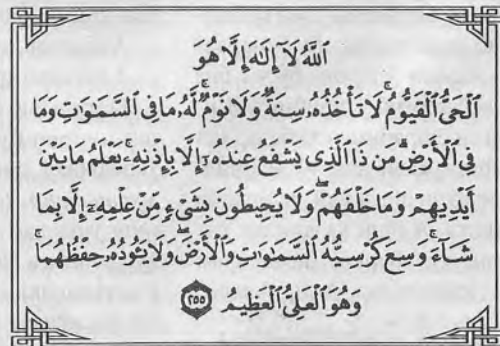 اللَّهُ لَآ إِلَٰهَ إِلَّا هُوَ
الْحَىُّ الْقَيُّومُ ۚ لَا تَأْخُذُهُۥ سِنَةٌ وَلَا نَوْمٌ ۚ لَّهُۥ مَا فِى السَّمَٰوَٰتِ وَمَا
فِى الْأَرْضِ ۗ مَن ذَا الَّذِى يَشْفَعُ عِندَهُۥٓ إِلَّا بِإِذْنِهِۦ ۚ يَعْلَمُ مَا بَيْنَ
أَيْدِيهِمْ وَمَا خَلْفَهُمْ ۖ وَلَا يُحِيطُونَ بِشَىْءٍ مِّنْ عِلْمِهِۦٓ إِلَّا بِمَا
شَآءَ ۚ وَسِعَ كُرْسِيُّهُ السَّمَٰوَٰتِ وَالْأَرْضَ ۖ وَلَا يَـُٔودُهُۥ حِفْظُهُمَا ۚ
وَهُوَ الْعَلِىُّ الْعَظِيمُ ٢٥٥